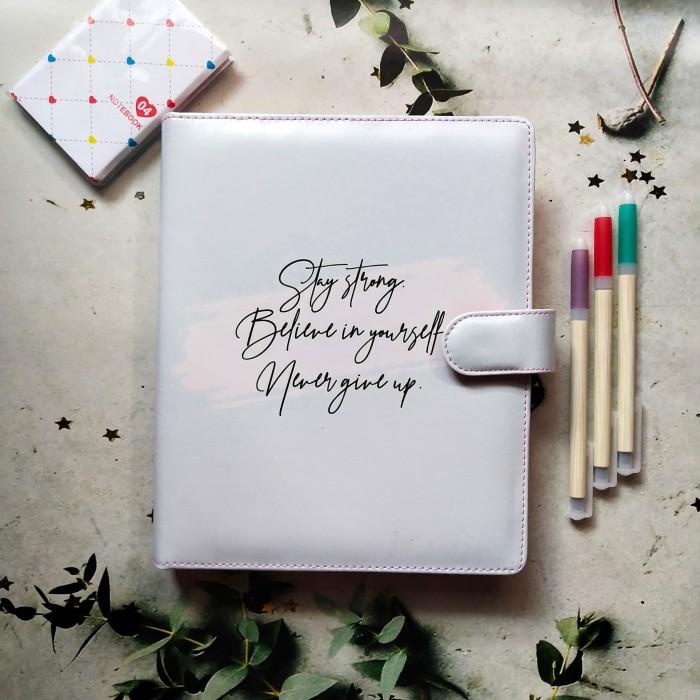 NOTEBOOK
04
Stay strong.
Believe in yourself
Never give up.